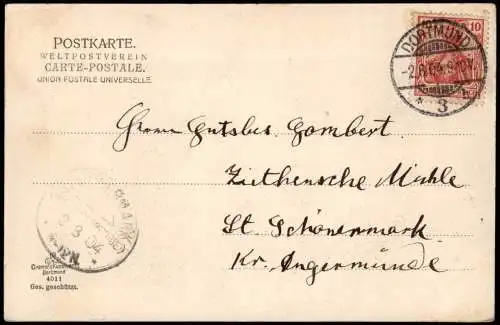 POSTKARTE.
WELTPOSTVEREIN
CARTE-POSTALE.
UNION POSTALE UNIVERSELLE.
10
DORTMUND
* 3
Herrn Gutsbes. Gombert
Ziethensche Mühle
St. Schönermark
Kr. Angermünde
8 04
Dortmund
4011
Ges. geschützt.